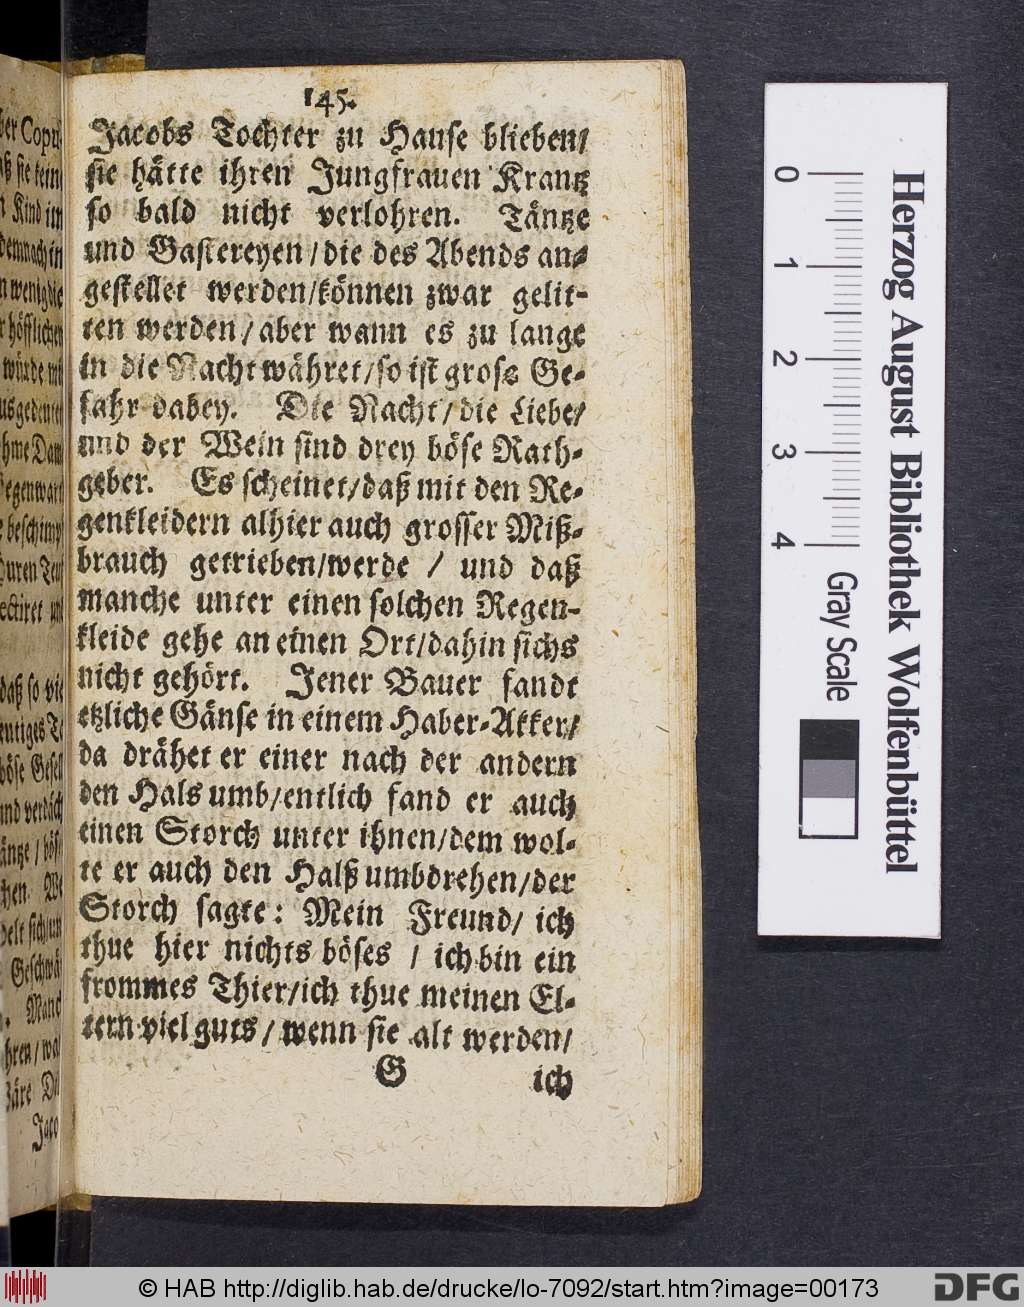 145.
Jacobs Tochter zu Hause blieben/
sie hätte ihren Jungfrauen Krantz
so bald nicht verlohren. Täntze
und Gastereyen/die des Abends an-
gestellet werden/können zwar gelit-
ten werden/aber wann es zu lange
in die Nacht währet/so ist grose Ge-
fahr dabey. Die Nacht/die Liebe/
und der Wein sind drey böse Rath-
geber. Es scheinet/daß mit den Re-
genkleidern alhier auch grosser Miß-
brauch getrieben/werde / und daß
manche unter einen solchen Regen-
kleide gehe an einen Ort/dahin sichs
nicht gehört. Jener Bauer fandt
etzliche Gänse in einem Haber-Akker/
da drähet er einer nach der andern
den Hals umb/entlich fand er auch
einen Storch unter ihnen/dem wol-
te er auch den Halß umbdrehen/der
Storch sagte: Mein Freund/ ich
thue hier nichts böses / ich bin ein
frommes Thier/ich thue meinen El-
tern viel guts/wenn sie alt werden/
G ich
0 1 2 3 4 Gray Scale
Herzog August Bibliothek Wolfenbüttel
© HAB http://diglib.hab.de/drucke/lo-7092/start.htm?image=00173
DFG